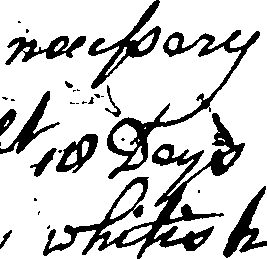 necessary
10 Days
whitish